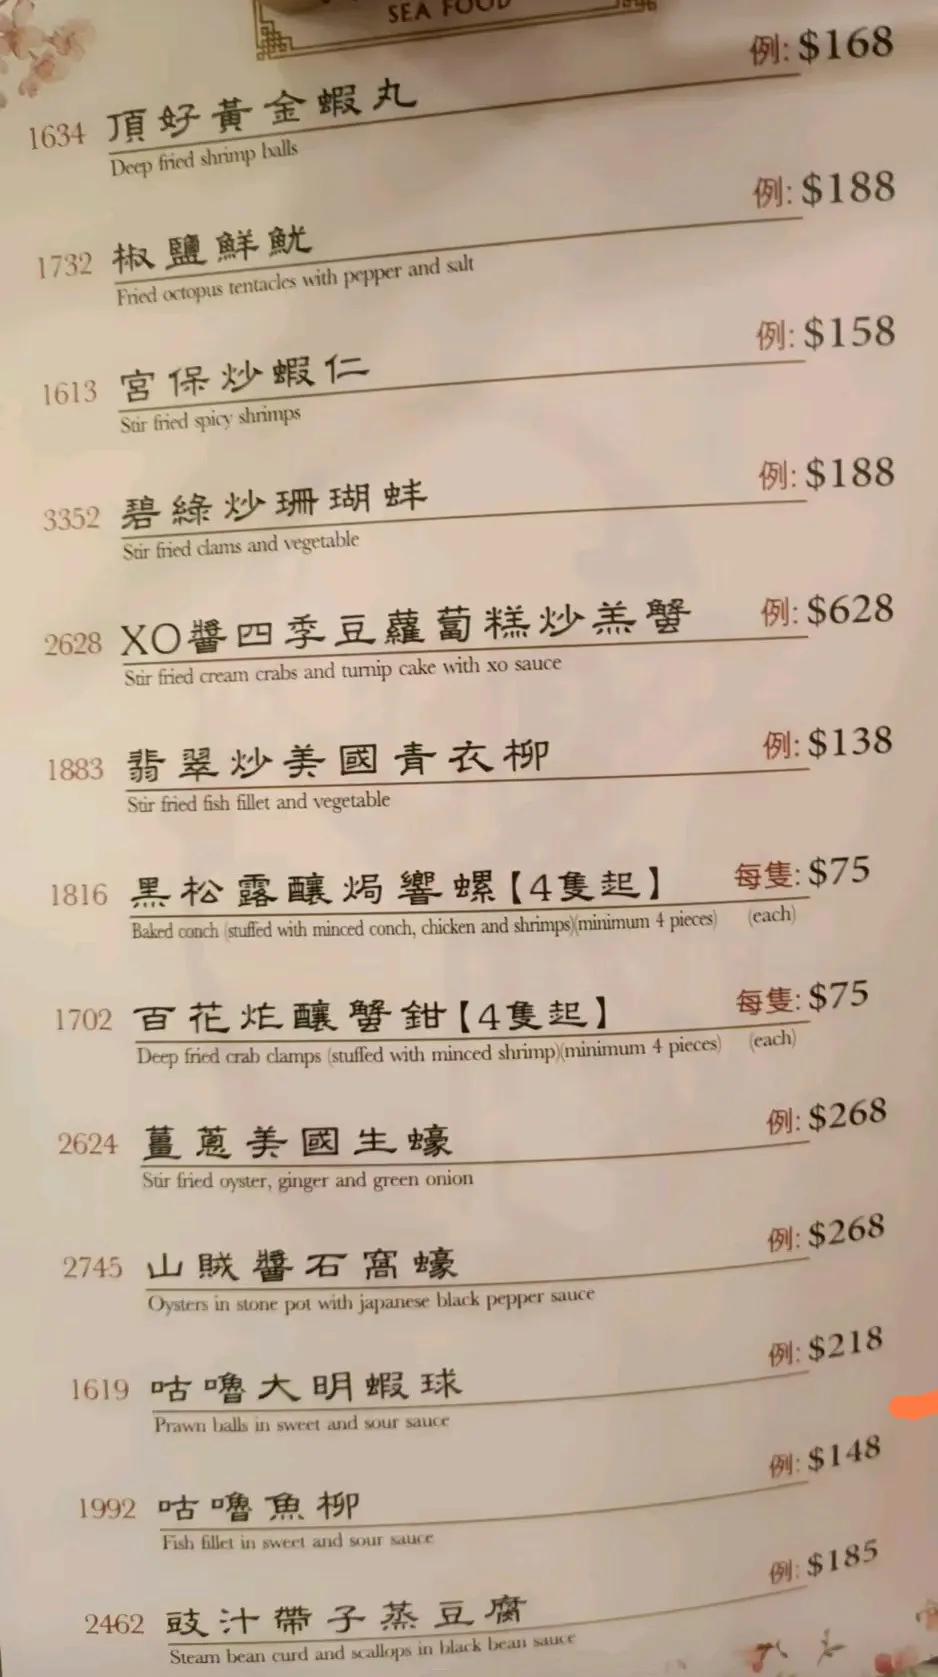 SEA FOOD
例: $168
1634 頂好黃金蝦丸
Deep fried shrimp balls
例: $188
1732 椒鹽鮮魷
Fried octopus tentacles with pepper and salt
例: $158
1613 宮保炒蝦仁
Stir fried spicy shrimps
例: $188
3352 碧綠炒珊瑚蚌
Stir fried clams and vegetable
2628 XO醬四季豆蘿蔔糕炒羔蟹 例: $628
Stir fried cream crabs and turnip cake with xo sauce
1883 翡翠炒美國青衣柳 例: $138
Stir fried fish fillet and vegetable
1816 黑松露釀焗響螺【4隻起】 每隻: $75
Baked conch (stuffed with minced conch, chicken and shrimps)(minimum 4 pieces) (each)
1702 百花炸釀蟹鉗【4隻起】 每隻: $75
Deep fried crab clamps (stuffed with minced shrimp)(minimum 4 pieces) (each)
2624 薑蔥美國生蠔 例: $268
Stir fried oyster, ginger and green onion
2745 山賊醬石窩蠔 例: $268
Oysters in stone pot with japanese black pepper sauce
1619 咕嚕大明蝦球 例: $218
Prawn balls in sweet and sour sauce
1992 咕嚕魚柳 例: $148
Fish fillet in sweet and sour sauce
2462 豉汁帶子蒸豆腐 例: $185
Steam bean curd and scallops in black bean sauce